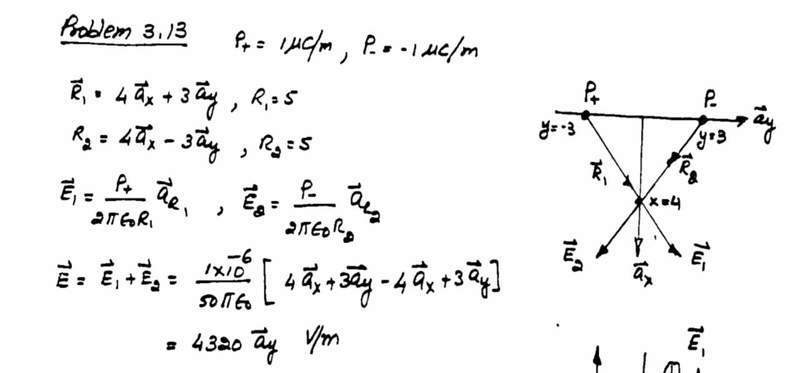 Problem 3.13
P₊ = 1 μC/m, P₋ = -1 μC/m
R⃗₁ = 4 a⃗x + 3 a⃗y, R₁ = 5
R₂ = 4a⃗x - 3a⃗y, R₂ = 5
E⃗₁ = P₊/2πε₀R₁ a⃗R₁, E⃗₂ = P₋/2πε₀R₂ a⃗R₂
E⃗ = E⃗₁ + E⃗₂ = 1×10⁻⁶/50πε₀ [4a⃗x + 3a⃗y - 4a⃗x + 3a⃗y]
= 4320 a⃗y V/m
P₊ P₋
y=-3 y=3 a⃗y
R⃗₁ R⃗₂
x=4
E⃗₂ a⃗x E⃗₁
E⃗₁